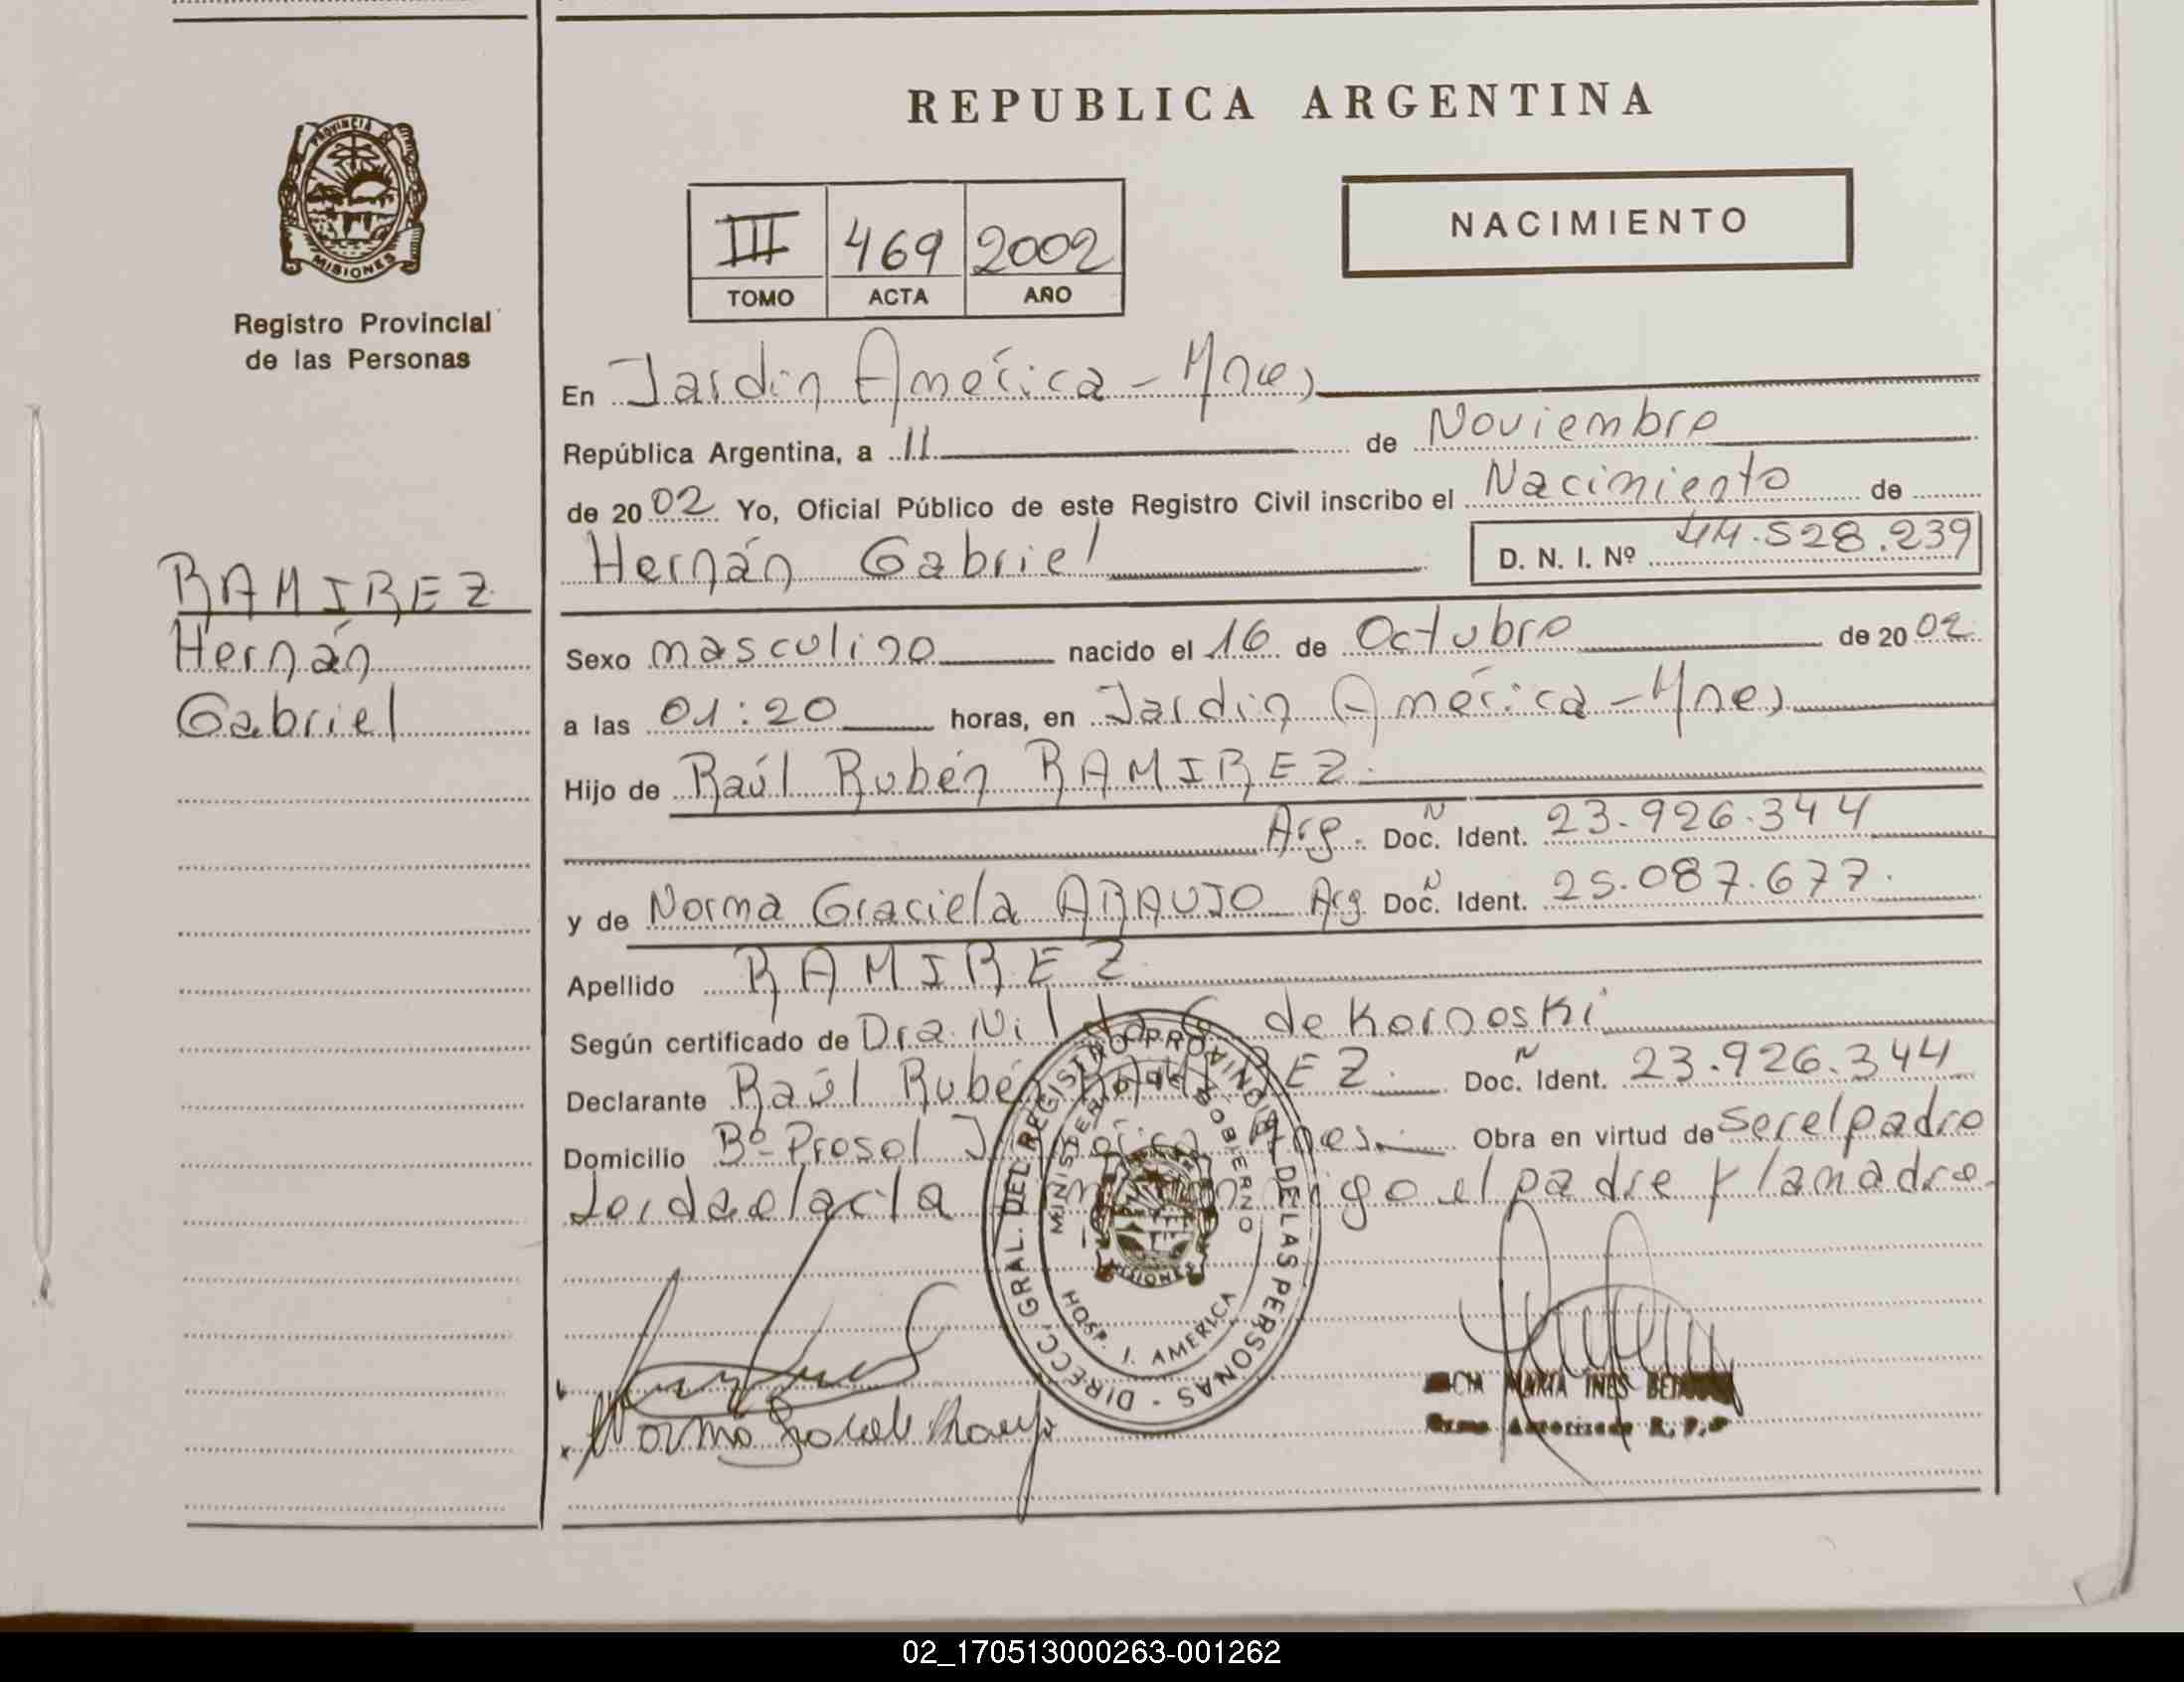 REPUBLICA ARGENTINA
PROVINCIA
MISIONES
Registro Provincial
de las Personas
III 469 2002
TOMO ACTA AÑO
NACIMIENTO
En Jardin América - Mnes
República Argentina, a 11 de Noviembre
de 2002 Yo, Oficial Público de este Registro Civil inscribo el Nacimiento de
Hernán Gabriel D. N. I. Nº 44.528.239
RAMIREZ
Hernán
Gabriel
Sexo masculino nacido el 16 de Octubre de 2002
a las 01:20 horas, en Jardin América - Mnes
Hijo de Raúl Rubén RAMIREZ.
Arg. Doc. N Ident. 23.926.344
y de Norma Graciela ARAUJO Arg Doc. N Ident. 25.087.677.
Apellido RAMIREZ
Según certificado de Dra. de Kornoski
Declarante Raúl Rubén RAMIREZ. Doc. N Ident. 23.926.344
Domicilio Bº Prosol J. América Mnes. Obra en virtud de ser el padre
Leida el acta conmigo el padre y la madre.
DIRECC. GRAL. DEL REGISTRO PROVINCIAL DE LAS PERSONAS
MINISTERIO DE GOBIERNO
MISIONES
HOSP. J. AMERICA
MARIA INES
Autorizada R. P. P
Norma Araujo
02_170513000263-001262